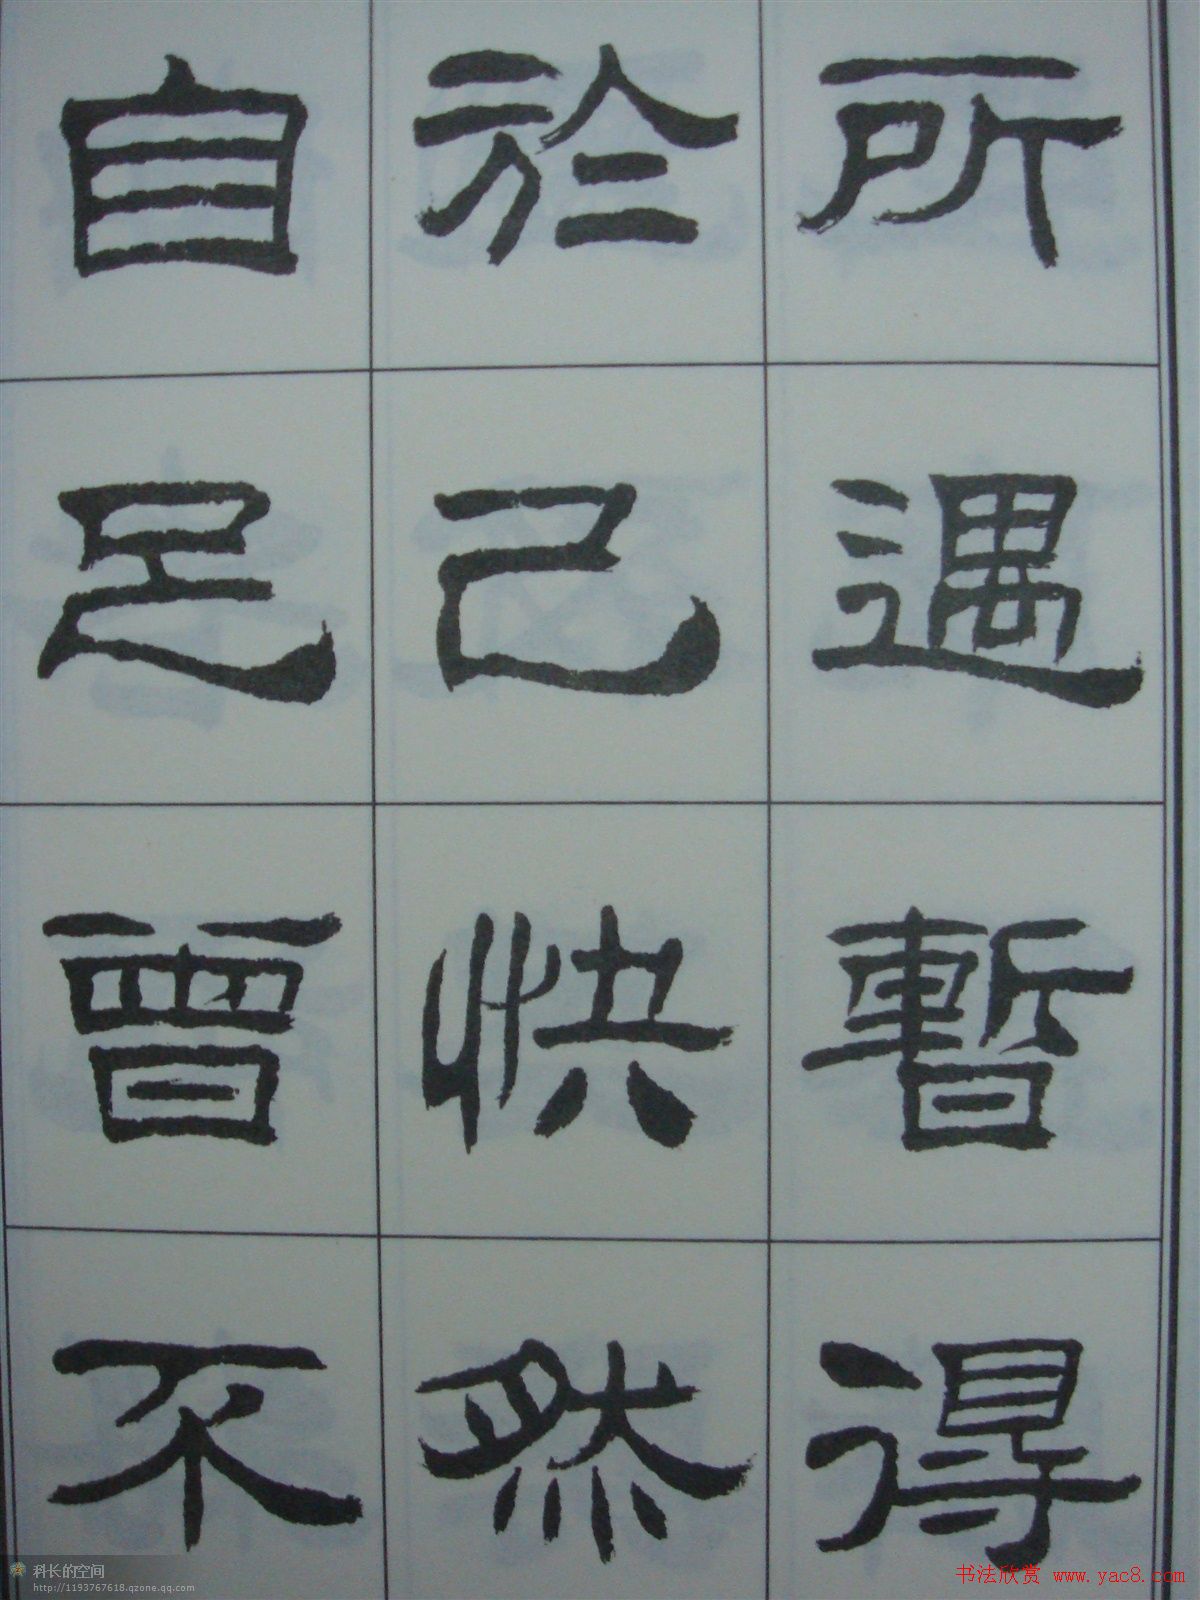 所遇暫得
於己快然
自足曾不
科长的空间
http://1193767618.qzone.qq.com
书法欣赏 www.yac8.com